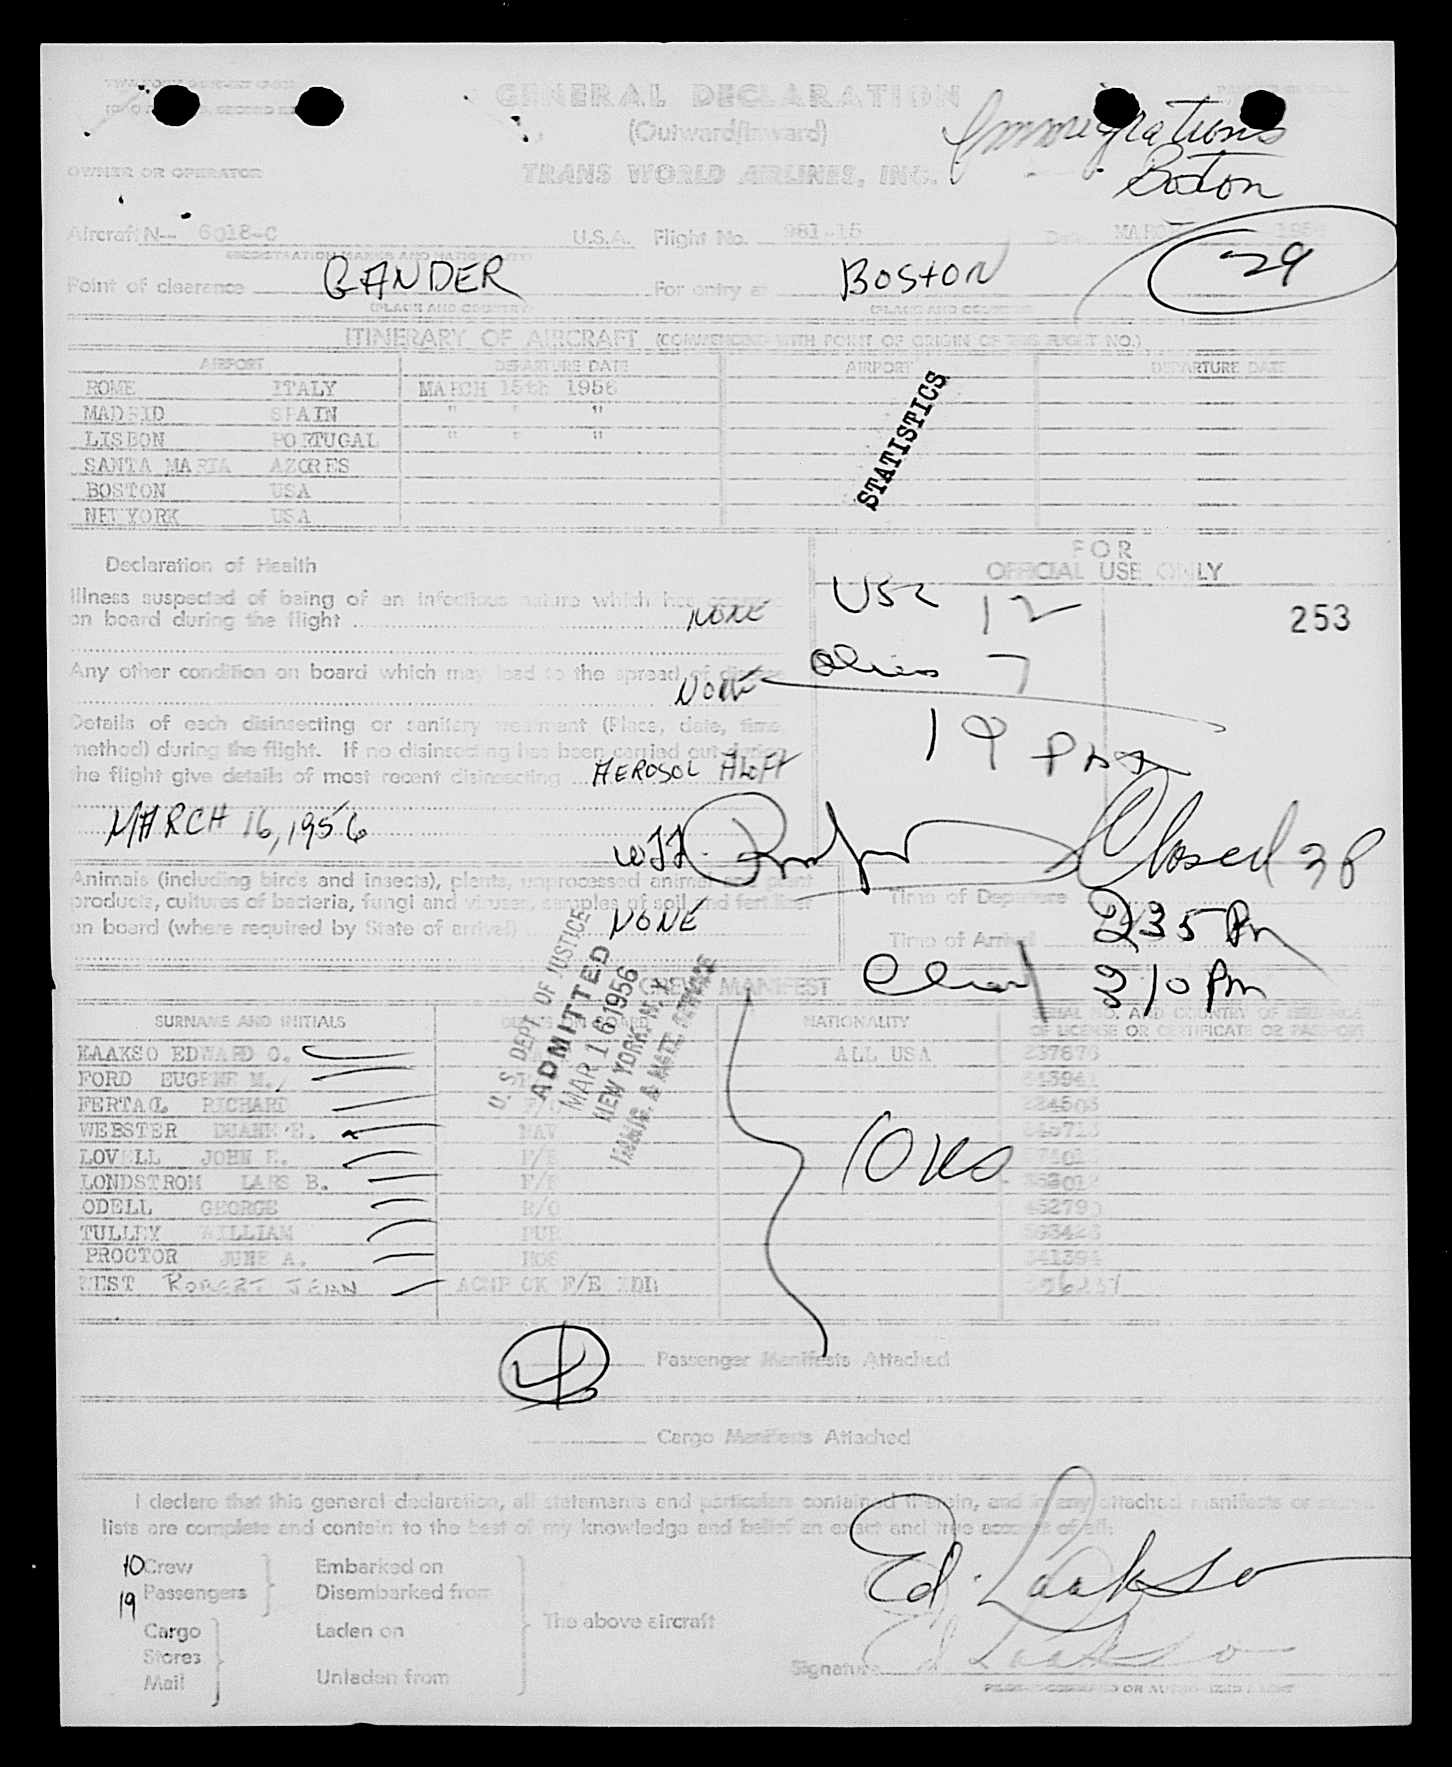 GENERAL DECLARATION
(Outward/Inward)
Immigrations
Boston
OWNER OR OPERATOR
TRANS WORLD AIRLINES, INC.
Aircraft N-- 6018-C U.S.A. Flight No. 981-15 MARCH 195
(REGISTRATION MARKS AND NATIONALITY)
29
Point of clearance GANDER For entry at BOSTON
(PLACE AND COUNTRY) (PLACE AND COUNTRY)
ITINERARY OF AIRCRAFT (COMMENCING WITH POINT OF ORIGIN OF THIS FLIGHT NO.)
AIRPORT DEPARTURE DATE AIRPORT DEPARTURE DATE
ROME ITALY MARCH 15th 1956
MADRID SPAIN " " "
LISBON PORTUGAL " " "
SANTA MARIA AZORES
BOSTON USA
NEW YORK USA
STATISTICS
Declaration of Health
FOR
OFFICIAL USE ONLY
Illness suspected of being of an infectious nature which has
on board during the flight NONE
USC 12
253
Any other condition on board which may lead to the spread of disease
NONE
Aliens 7
19
Details of each disinsecting or sanitary treatment (Place, date, time
method) during the flight. If no disinsecting has been carried out during
the flight give details of most recent disinsecting AEROSOL ALOFT
MARCH 16, 1956
Closed 3 P
Animals (including birds and insects), plants, unprocessed animal and plant
products, cultures of bacteria, fungi and viruses, samples of soil and fertilizer
on board (where required by State of arrival) NONE
Time of Departure
Time of Arrival 235 Pm
310 pm
U. S. DEPT. OF JUSTICE
ADMITTED
MAR 16 1956
NEW YORK, N. Y.
IMMIG. & NATZ. SERVICE
CREW MANIFEST
SURNAME AND INITIALS DUTIES ON BOARD NATIONALITY SERIAL NO. AND COUNTRY OF ISSUANCE
OF LICENSE OR CERTIFICATE OR PASSPORT
KAAKSO EDWARD O. ALL USA
FORD EUGENE M.
RICHARD
WEBSTER DUANE E. NAV
LOVELL JOHN E. F/E
LONDSTROM LARS B. F/E
ODELL GEORGE R/O
TULLEY WILLIAM PUR
PROCTOR JUNE A. HOS
WEST ROBERT JEHN F/E
Passenger Manifests Attached
Cargo Manifests Attached
I declare that this general declaration, all statements and particulars contained therein, and in any attached manifests or
lists are complete and contain to the best of my knowledge and belief an exact and true account of all:
10 Crew
19 Passengers
Embarked on
Disembarked from
Cargo
Stores
Mail
Laden on
Unladen from
The above aircraft
Ed Laakso
Ed Laakso
Signature